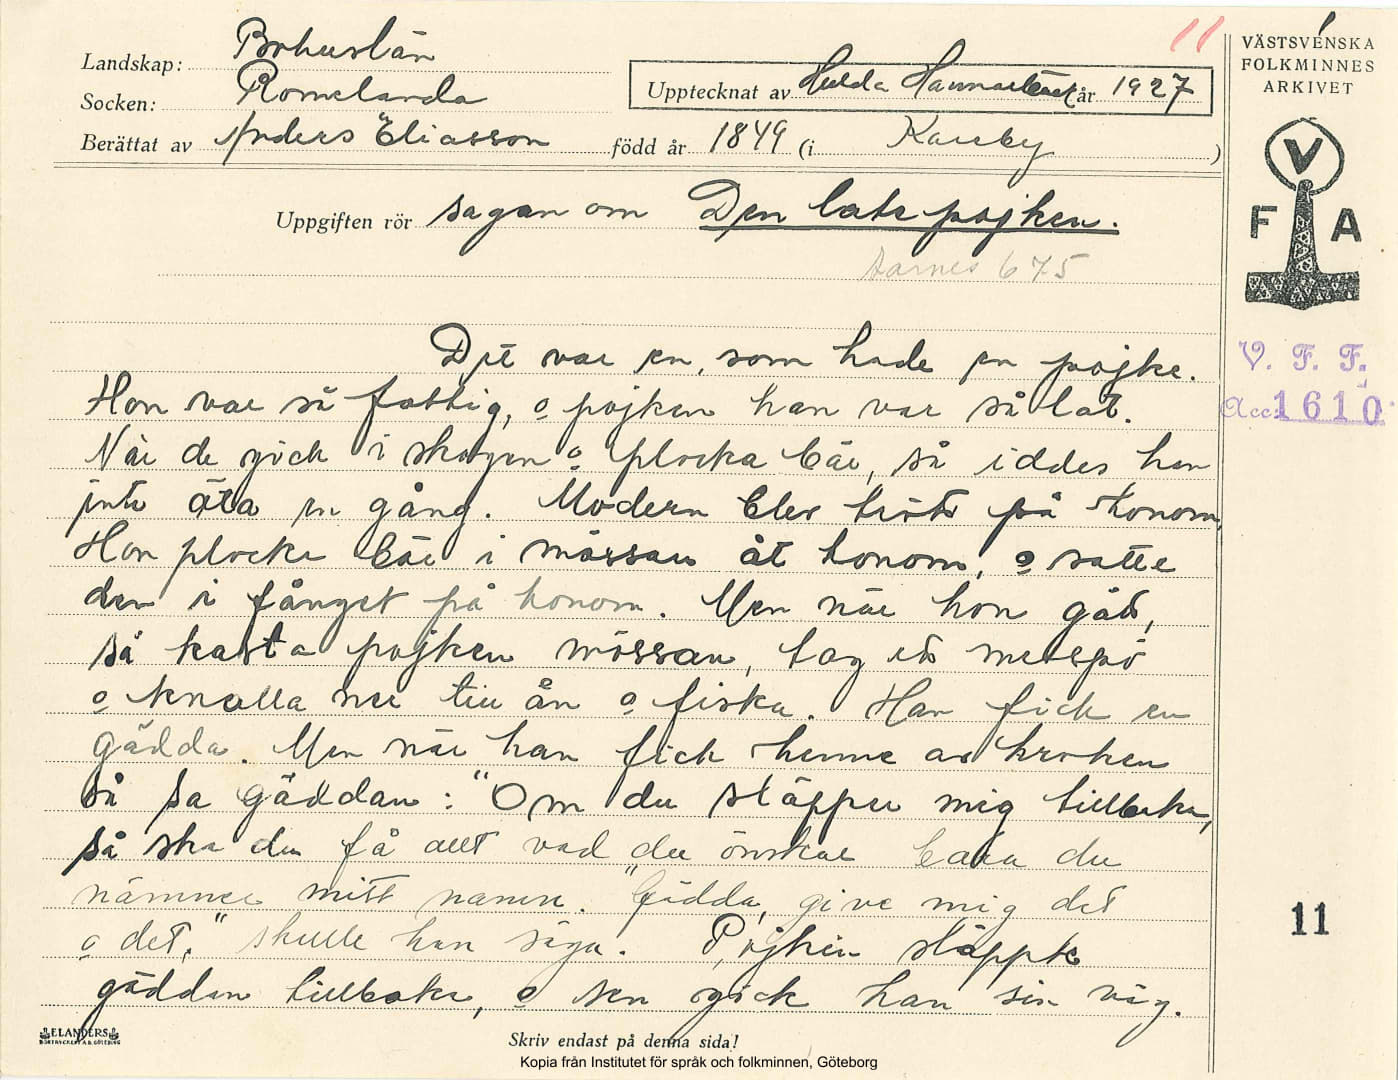 11
VÄSTSVENSKA
FOLKMINNES
ARKIVET
Landskap: Bohuslän
Socken: Romelanda
Upptecknat av Hulda Hammarbäck år 1927
Berättat av Anders Eliasson född år 1849 (i Kareby)
Uppgiften rör sagan om Den late pojken.
Aarnes 675
V
F A
Det var en, som hade en pojke.
Hon var så fattig, o pojken han var så lat.
När de gick i skogen o plocka bär, så iddes han
inte äta en gång. Modern blev trött på honom.
Hon plocka bär i mössan åt honom, o satte
den i fånget på honom. Men när hon gått,
så kasta pojken mössan, tog ett metspö
o knalla ner till ån o fiska. Han fick en
gädda. Men när han fick henne av kroken
så sa gäddan: "Om du släpper mig tillbaka,
så ska du få allt vad du önskar bara du
nämner mitt namn. "Gädda, give mig det
o det," skulle han säga. Pojken släppte
gäddan tillbaka, o sen gick han sin väg.
V. F. F.
Acc: 1610
11
ELANDERS
BOKTRYCKERI A.B. GÖTEBORG
Skriv endast på denna sida!
Kopia från Institutet för språk och folkminnen, Göteborg